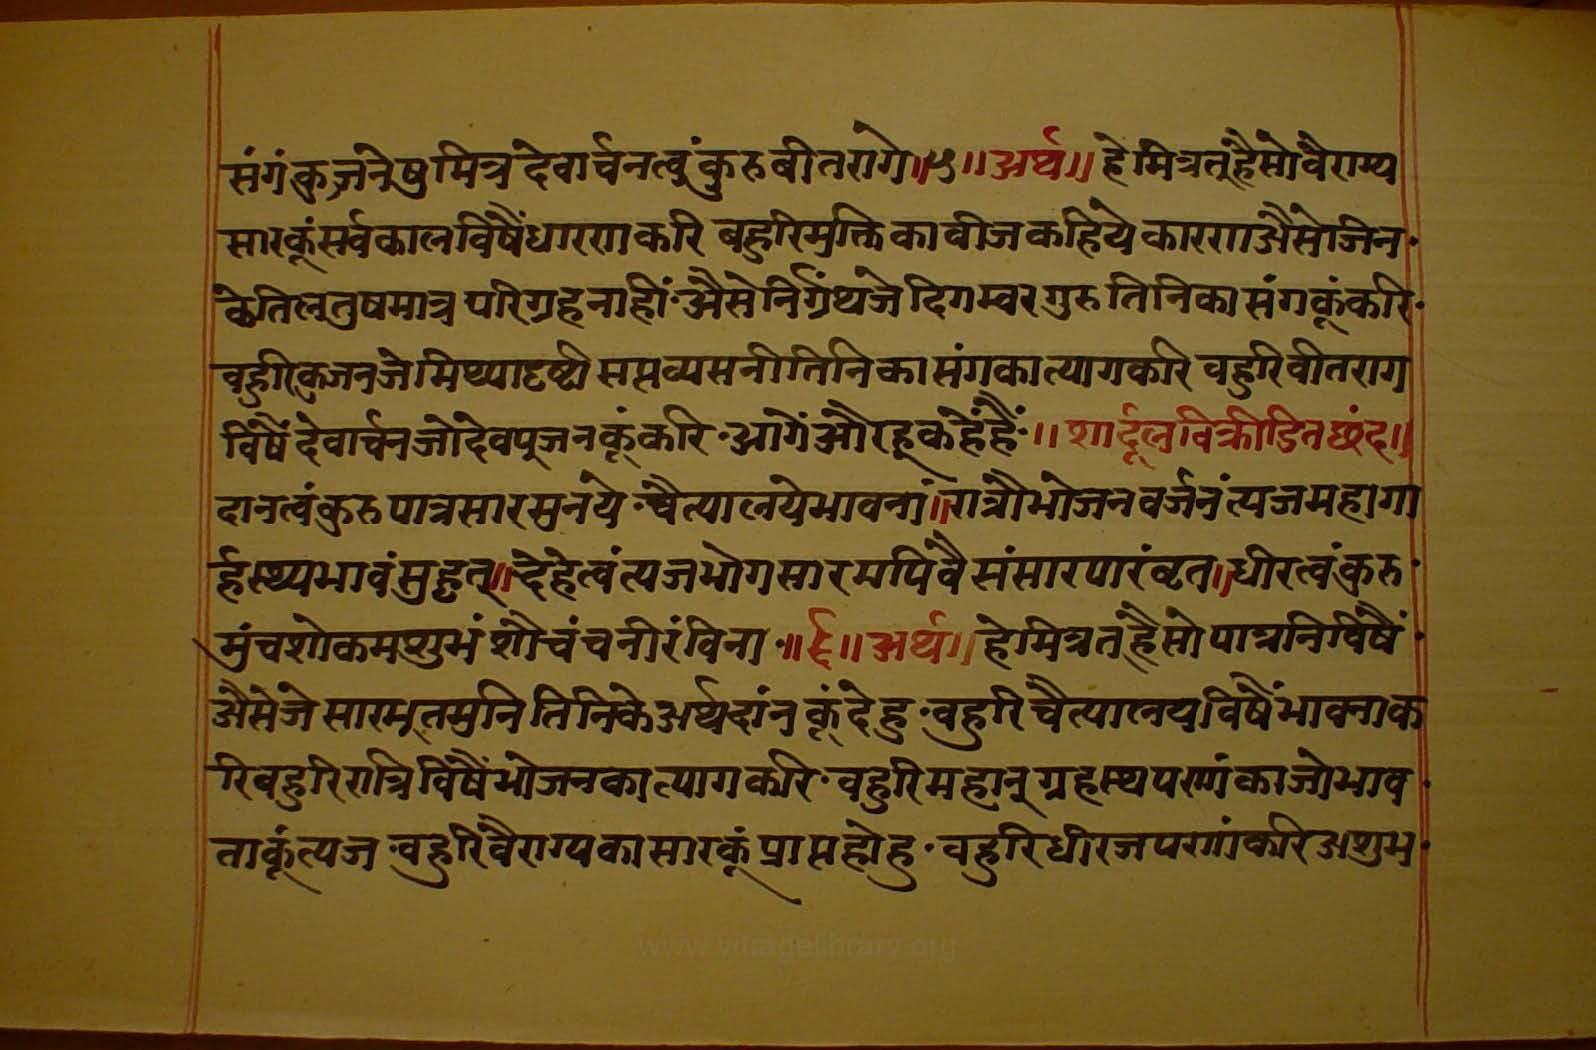 संगं कुजनेषु मित्र देवार्चनत्वं कुरु बीतरागे॥५॥अर्थ॥ हे मित्र तू है सो वैराग्य
सारकूं सर्वकाल विषैं धारण करि बहुरि मुक्ति का वीज कहिये कारण अैसो जिन·
के तिलतुषमात्र परिग्रह नाहीं·अैसे निर्ग्रंथ जे दिगम्वर गुरु तिनिका संगकूं करि·
वहुरि कुजन जे मिथ्यादृष्टी सप्तव्यसनी तिनिका संग का त्याग करि वहुरि वीतराग
विषैं देवार्चन जो देवपूजन कूं करि·आगें और हू कहें हैं·॥शार्दूलविक्रीडित छंद॥
दानत्वं कुरु पात्रसारमुनये·चैत्यालये भावनां॥रात्रौ भोजनवर्जनं त्यज महागा
र्हस्थ्यभावं सुहृत्॥देहे त्वं त्यज भोगसारमपि वै संसारपारं व्रत॥धीरत्वं कुरु·
मुंच शोकमशुभं शौचं च नीरं विना·॥६॥अर्थ॥ हे मित्र तू है सो पात्रनि विषैं·
अैसे जे सारभूत मुनि तिनिके अर्थ दांन कूं देहु·वहुरि चैत्यालय विषैं भावना क
रि बहुरि रात्रि विषैं भोजन का त्याग करि·वहुरि महान् ग्रहस्थपणां का जो भाव·
ताकूं त्यज·वहुरि वैराग्य का सारकूं प्राप्त होहु·वहुरि धीरजपणां करि अशुभ·
www.vitragelibrary.org